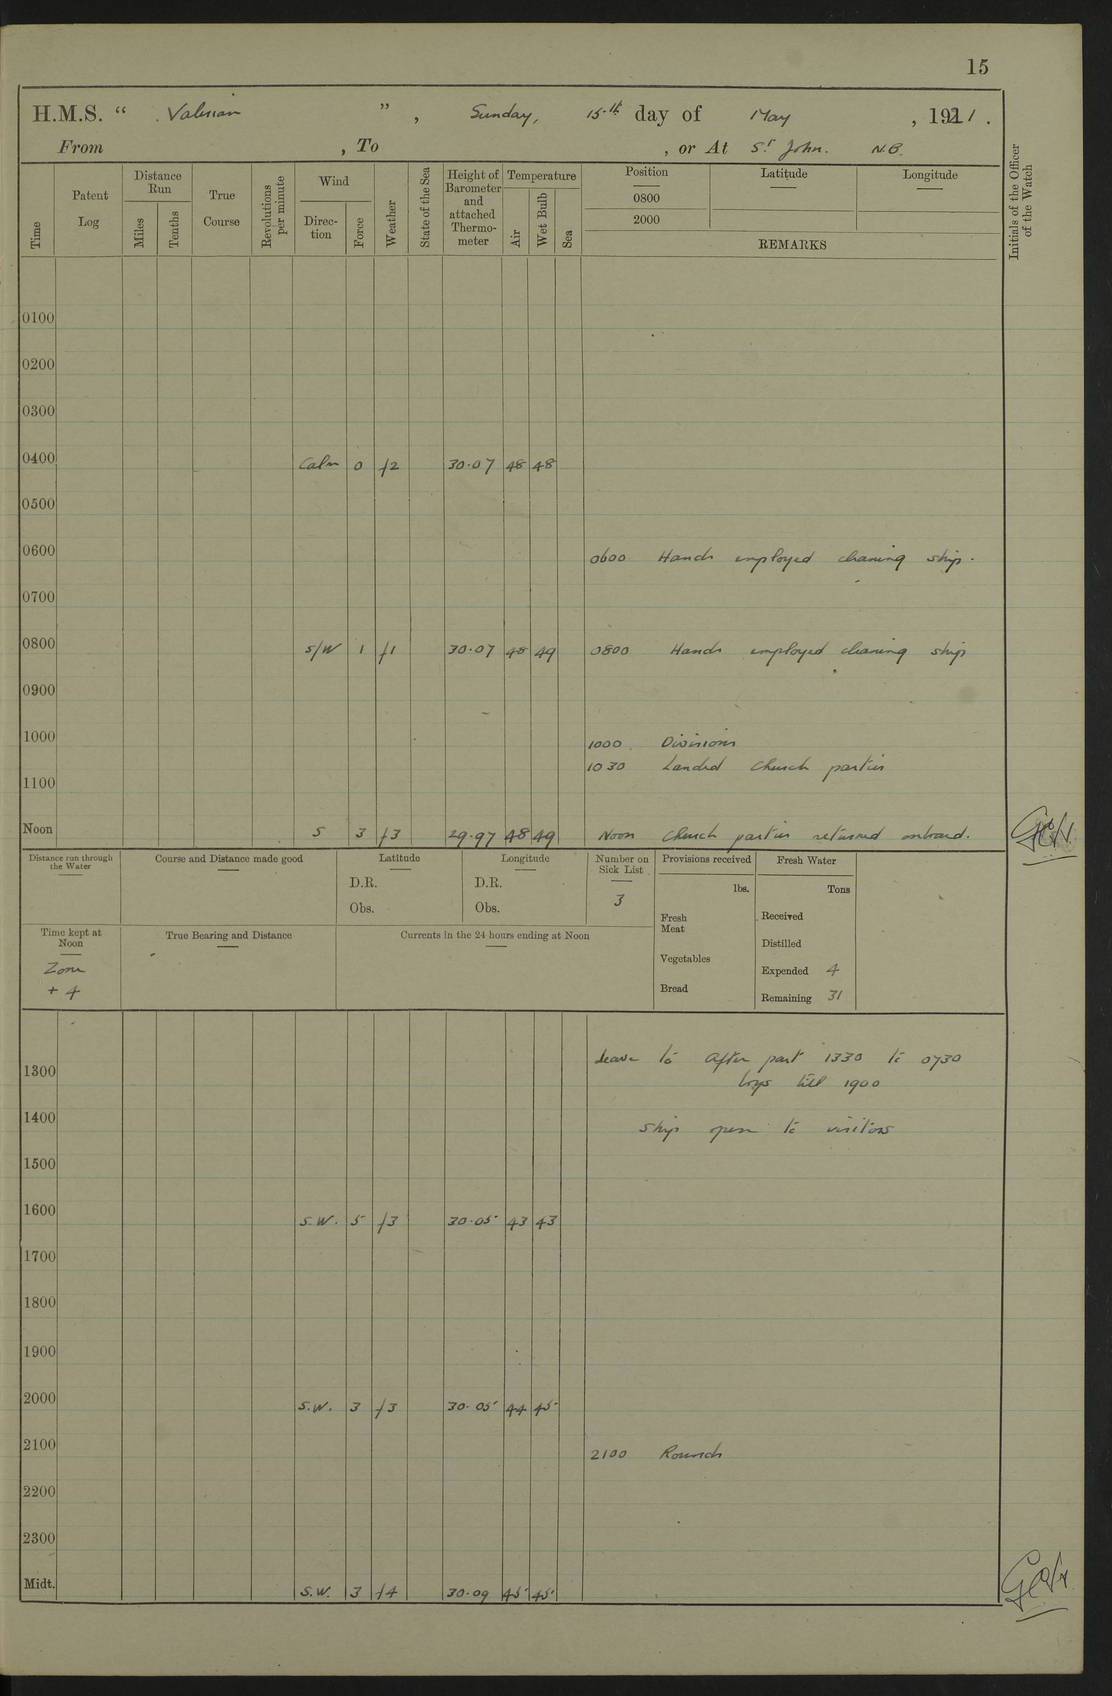 15
H.M.S. “ Valerian ” , Sunday, 15th day of May , 1921 .
From , To , or At St John. N.B.
Time
Patent Log
Distance Run
Miles
Tenths
True Course
Revolutions per minute
Wind
Direction
Force
Weather
State of the Sea
Height of Barometer and attached Thermometer
Temperature
Air
Wet Bulb
Sea
Position
0800
2000
Latitude
Longitude
REMARKS
Initials of the Officer of the Watch
0100
0200
0300
0400 Calm 0 f2 30.07 48 48
0500
0600 0600 Hands employed cleaning ship.
0700
0800 S/W 1 f1 30.07 48 49 0800 Hands employed cleaning ship
0900
1000 1000 Divisions
1030 Landed Church parties
1100
Noon S 3 f3 29.97 48 49 Noon Church parties returned onboard.
Distance run through the Water
Course and Distance made good
Latitude
D.R.
Obs.
Longitude
D.R.
Obs.
Number on Sick List
3
Provisions received
lbs.
Fresh Meat
Vegetables
Bread
Fresh Water
Tons
Received
Distilled
Expended 4
Remaining 31
Time kept at Noon
Zone
+ 4
True Bearing and Distance
Currents in the 24 hours ending at Noon
Leave to after part 1330 to 0730
1300
boys till 1900
1400 Ship open to visitors
1500
1600 S.W. 5 f3 30.05 43 43
1700
1800
1900
2000 S.W. 3 f3 30.05 44 45
2100 2100 Rounds
2200
2300
Midt. S.W. 3 f4 30.09 45 45